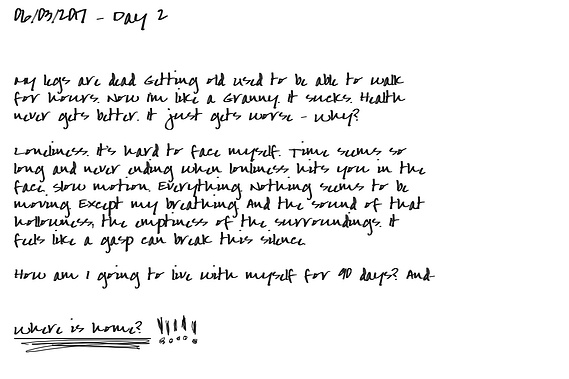 06/03/2017 - Day 2
My legs are dead Getting old used to be able to walk
for hours. Now I'm like a Granny. It sucks. Health
never gets better. It just gets worse - why?
Loneliness. It's hard to face myself. Time seems so
long and never ending when lonliness hits you in the
face. slow motion. Everything Nothing seems to be
moving Except my breathing And the sound of that
hollowness, the emptiness of the surroundings. It
feels like a gasp can break this silence.
How am I going to live with myself for 90 days? And-
Where is home? !!!!!